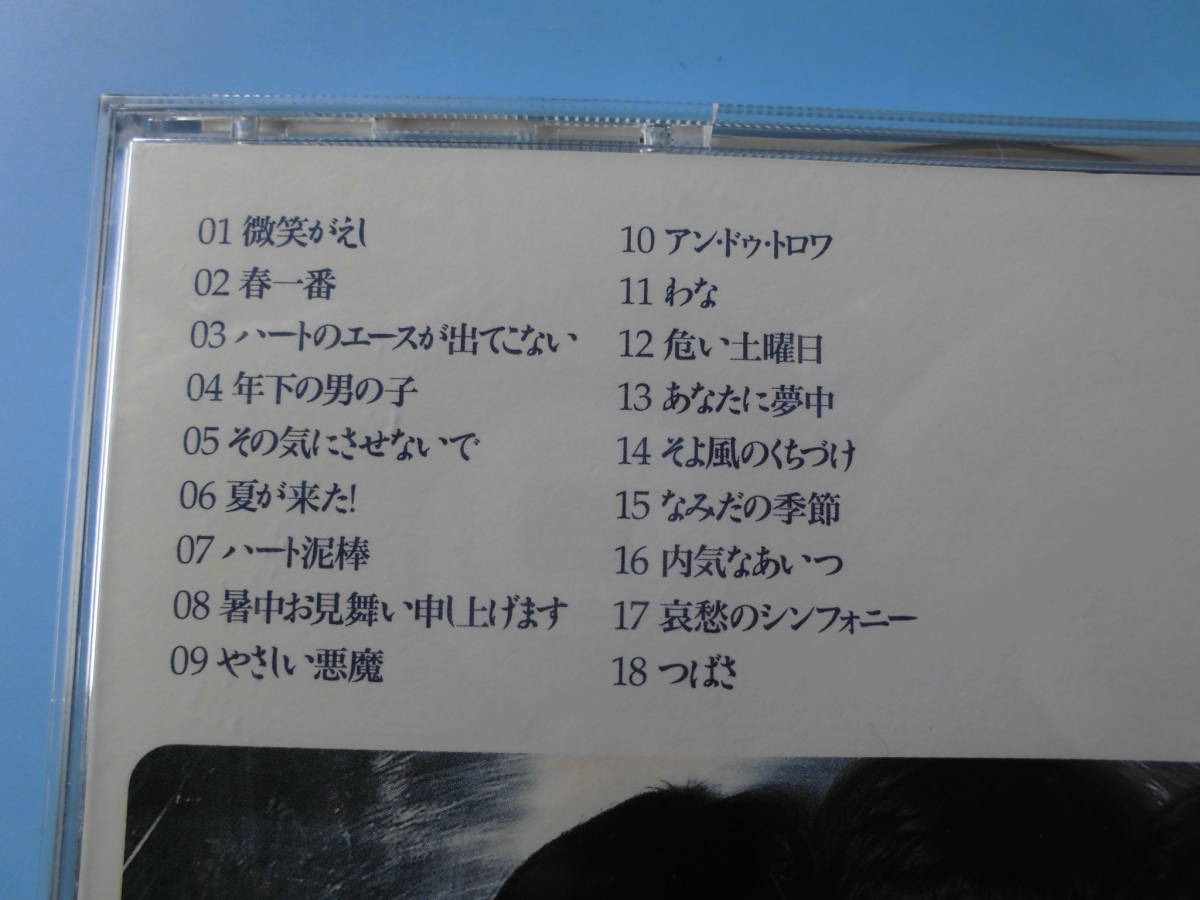 01 微笑がえし
02 春一番
03 ハートのエースが出てこない
04 年下の男の子
05 その気にさせないで
06 夏が来た!
07 ハート泥棒
08 暑中お見舞い申し上げます
09 やさしい悪魔
10 アン・ドゥ・トロワ
11 わな
12 危い土曜日
13 あなたに夢中
14 そよ風のくちづけ
15 なみだの季節
16 内気なあいつ
17 哀愁のシンフォニー
18 つばさ